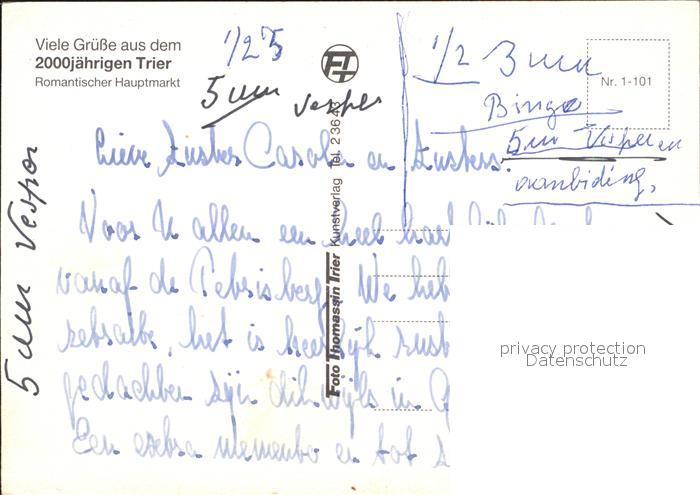 Viele Grüße aus dem
2000jährigen Trier
Romantischer Hauptmarkt
1/2 5
5 uur Vesper
1/2 3 uur
Bingo
5 uur Vesper en
aanbidding.
Nr. 1-101
5 uur Vesper
Foto Thomassin Trier Kunstverlag Tel. 2 36 4
Lieve Zuster Carola en Zusters.
Voor U allen een heel har
vanaf de Petrisberg. We heb
het is heerlijk rust
gedachten zijn dikwijls in
Een extra memento en tot
privacy protection
Datenschutz